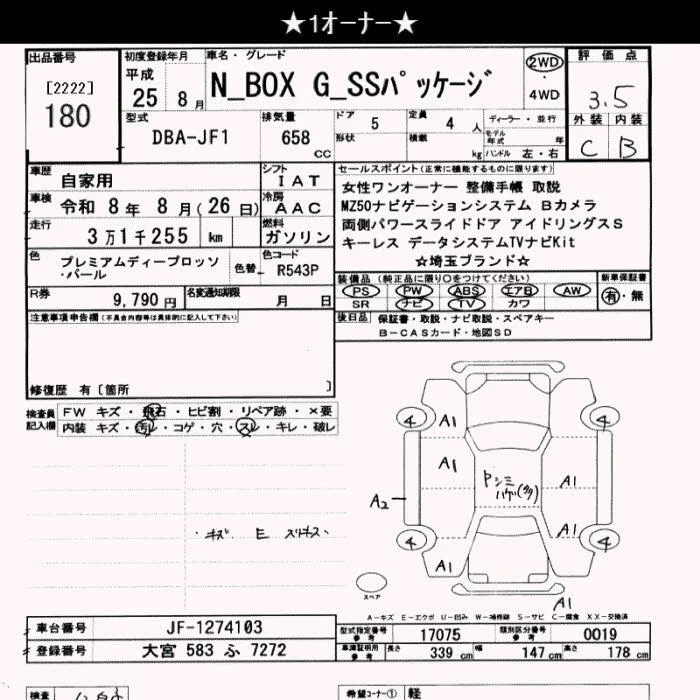 ★1オーナー★
出品番号
[2222]
180
初度登録年月
平成
25 8 月
車名・グレード
N_BOX G_SSパッケージ
2WD
・
4WD
評価点
3.5
外装 内装
C B
型式
DBA-JF1
排気量
658
CC
ドア 5
形状
定員 4 人
積載 kg
ディーラー・並行
モデル年式 年
ハンドル 左・右
車歴 自家用
シフト IAT
車検 令和 8年 8月(26日)
冷房 AAC
走行 3万1千255 km
燃料 ガソリン
色 プレミアムディープロッソ・パール
色替
色コード R543P
R券 9,790 円
名変通知期限 月 日
セールスポイント(正常に機能するものに限ります)
女性ワンオーナー 整備手帳 取説
MZ50ナビゲーションシステム Bカメラ
両側パワースライドドア アイドリングスS
キーレス データシステムTVナビKit
☆埼玉ブランド☆
装備品 (純正品に限り○をつけてください)
新車保証書
PS PW ABS エアB AW
SR ナビ TV カワ
有・無
後日品 保証書・取説・ナビ取説・スペアキー
B-CASカード・地図SD
注意事項申告欄(不具合内容等は具体的に記入して下さい)
修復歴 有〔箇所 〕
検査員記入欄
FW キズ・飛石・ヒビ割・リペア跡・×要
内装 キズ・汚レ・コゲ・穴・スレ・キレ・破レ
・キズ E スリキズ、
4 A1 4
A1 A1
A2
A1
4 A1 4
A1
スペア
A-キズ E-エクボ U-凹み W-補修跡 S-サビ C-腐食 XX-交換済
車台番号 JF-1274103
登録番号 大宮 583 ふ 7272
型式指定番号 参考 17075
類別区分番号 参考 0019
車庫証明用 参考 長さ 339 cm 幅 147 cm 高さ 178 cm
検査
希望コーナー① 軽